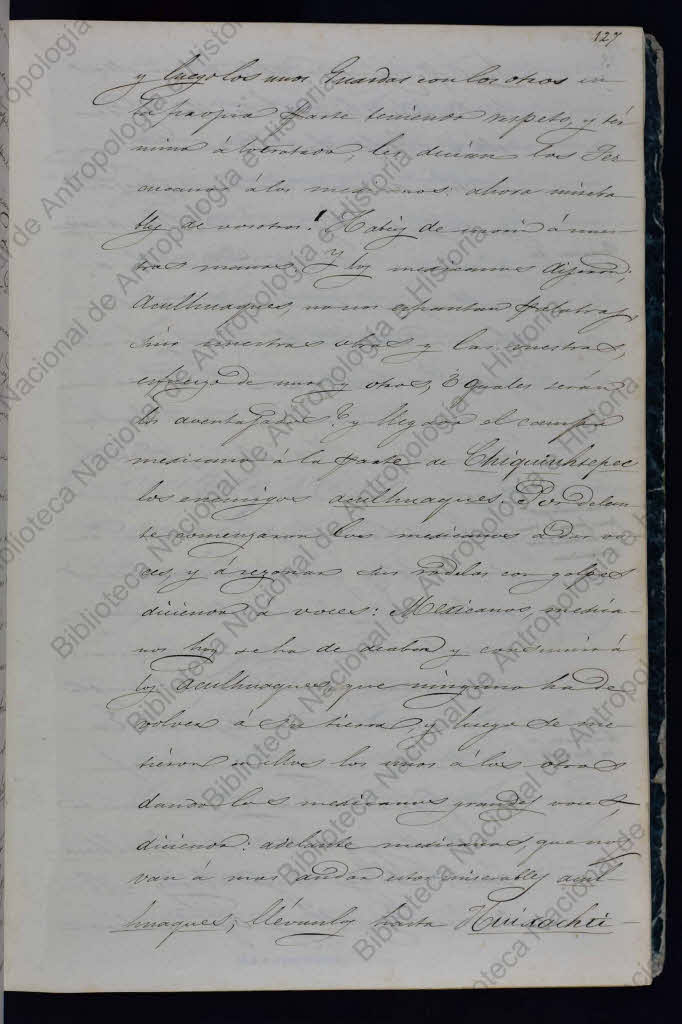 127
y luego los unos Guardas con los otros en
la propia parte teniendo respeto, y tér
mino á lo tratado, les decian los Tez
cucanos á los mexicanos: ahora misera
bles de vosotros! Habeis de morir á nues
tras manos. Y los mexicanos dijeron;
aculhuaques, no nos espantan palabras,
sino nuestras obras y las vuestras,
esfuerzo de unos y otros, é quales serán
los aventajados? y llegado el campo
mexicano á la parte de Chiquiuhtepec
los enemigos aculhuaques. Por delan
te comenzaron los mexicanos a dar vo
ces, y á resonar sus rodelas con golpes
diciendo á voces: Mexicanos, mexica
nos hoy se ha de acabar y consumir á
los aculhuaques, que ninguno ha de
volver á su tierra, y luego se me
tieron en ellos los unos á los otros
dando los mexicanos grandes voces,
diciendo: adelante mexicanos, que nos
van á mas andar estos miserables acul
huaques, llévanlos hasta Huixachti-
Biblioteca Nacional de Antropología e Historia